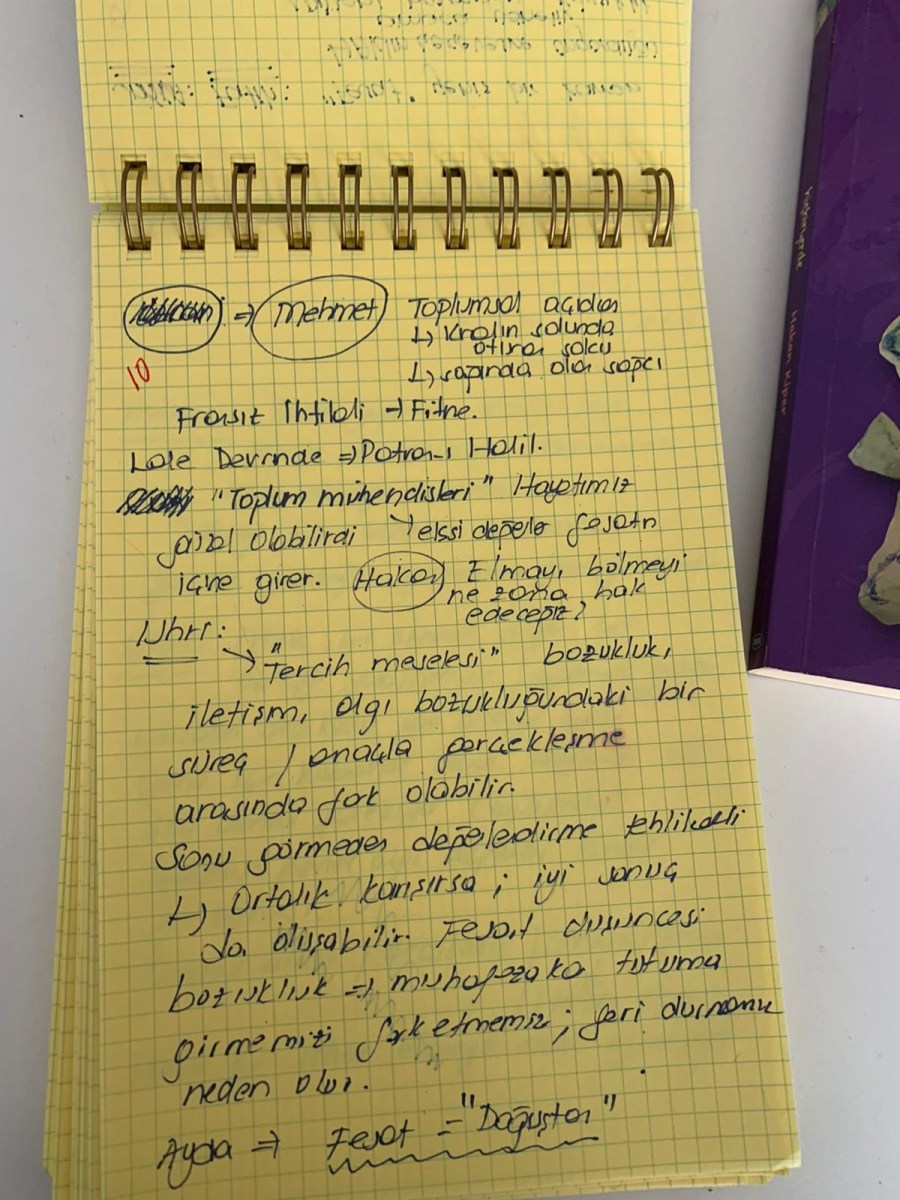 ⇒ Mehmet Toplumsal açıdan
↳ Kralın solunda
oturan solcu
↳ sağında olan sağcı
10
Fransız İhtilali → Fitne.
Lale Devrinde ⇒ Patrona Halil.
"Toplum mühendisleri" Hayatımız
güzel olabilirdi
içine girer. Hakan Elmayı bölmeyi
ne zaman hak
edeceğiz?
Nhri:
→ "Tercih meselesi" bozukluk,
iletişim, algı bozukluğundaki bir
süreç / amaçla gerçekleşme
arasında fark olabilir.
Sonu görmeden değerlendirme tehlikeli
↳ Ortalık karışırsa ; iyi sonuç
da oluşabilir. Fesat düşüncesi
bozukluk ⇒ muhafazakar tutuma
girmemizi fark etmemiz ; geri durmamıza
neden olur.
Ayda ⇒ Fesat = "Doğuştan"
Hakan Kiper